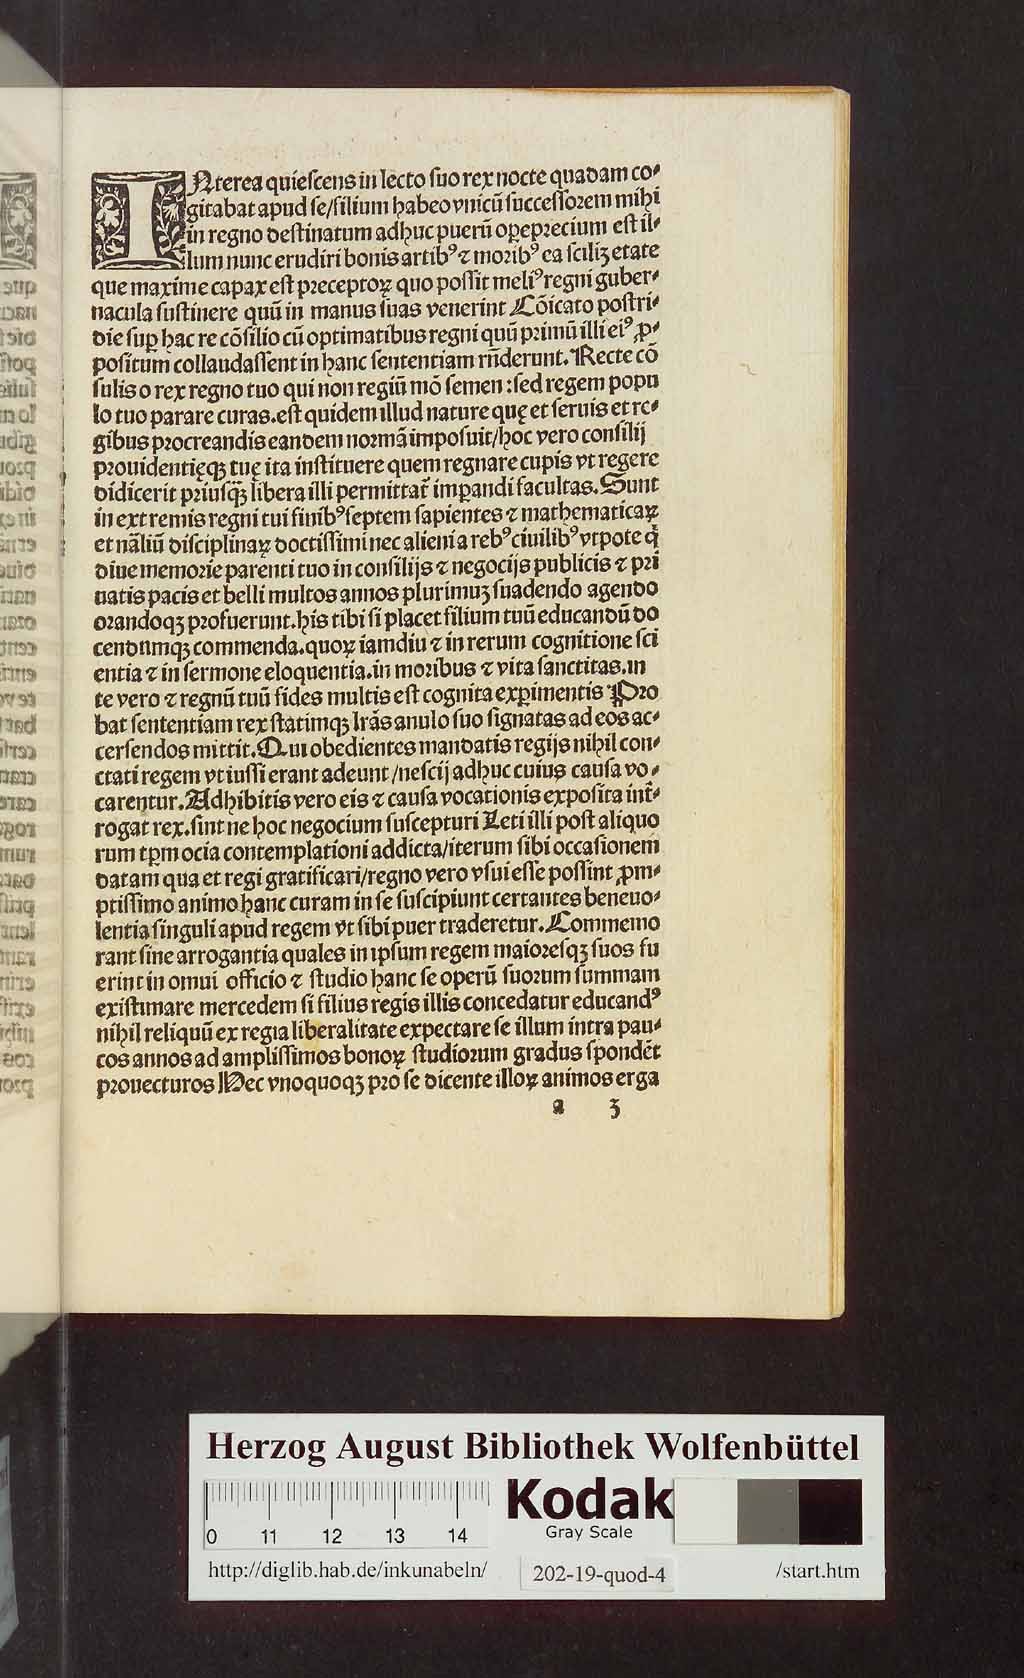 INterea quiescens in lecto suo rex nocte quadam co⸗
gitabat apud se/filium habeo vnicū successorem mihi
in regno destinatum adhuc puerū opeprecium est il⸗
lum nunc erudiri bonis artibꝰ ⁊ moribꝰ ea scilicꝫ etate
que maxime capax est preceptoꝝ quo possit meliꝰ regni guber⸗
nacula sustinere quū in manus suas venerint Cōicato postri⸗
die suꝑ hac re cōsilio cū optimatibus regni quū primū illi eiꝰ ꝓ⸗
positum collaudassent in hanc sententiam rn̄derunt. Recte cō
sulis o rex regno tuo qui non regiū mō semen: sed regem popu
lo tuo parare curas. est quidem illud nature quę et seruis et re⸗
gibus procreandis eandem normā imposuit/hoc vero consilij
prouidentięqꝫ tuę ita instituere quem regnare cupis vt regere
didicerit priusqꝫ̄ libera illi permittat̄ imꝑandi facultas. Sunt
in extremis regni tui finibꝰ septem sapientes ⁊ mathematicaꝝ
et nāliū disciplinaꝝ doctissimi nec alieni a rebꝰ ciuilibꝰ vtpote q̇
diue memorie parenti tuo in consilijs ⁊ negocijs publicis ⁊ pri
uatis pacis et belli multos annos plurimuꝫ suadendo agendo
orandoqꝫ profuerunt. his tibi si placet filium tuū educandū do
cendumqꝫ commenda. quoꝝ iamdiu ⁊ in rerum cognitione sci
entia ⁊ in sermone eloquentia. in moribus ⁊ vita sanctitas. in
te vero ⁊ regnū tuū fides multis est cognita exꝑimentis Pro
bat sententiam rex statimqꝫ lrās anulo suo signatas ad eos ac⸗
cersendos mittit. Qui obedientes mandatis regijs nihil con⸗
ctati regem vt iussi erant adeunt/nescij adhuc cuius causa vo⸗
carentur. Adhibitis vero eis ⁊ causa vocationis exposita int̄⸗
rogat rex. sint ne hoc negocium suscepturi Leti illi post aliquo
rum tꝑm ocia contemplationi addicta/iterum sibi occasionem
datam qua et regi gratificari/regno vero vsui esse possint ꝓm⸗
ptissimo animo hanc curam in se suscipiunt certantes beneuo⸗
lentia singuli apud regem vt sibi puer traderetur. Commemo
rant sine arrogantia quales in ipsum regem maioresqꝫ suos fu
erint in omni officio ⁊ studio hanc se operū suorum summam
existimare mercedem si filius regis illis concedatur educandꝰ
nihil reliquū ex regia liberalitate expectare se illum intra pau⸗
cos annos ad amplissimos bonoꝝ studiorum gradus spondēt
prouecturos Hec vnoquoqꝫ pro se dicente illoꝝ animos erga
a 3
Herzog August Bibliothek Wolfenbüttel
Kodak
Gray Scale
0 11 12 13 14
http://diglib.hab.de/inkunabeln/ 202-19-quod-4 /start.htm